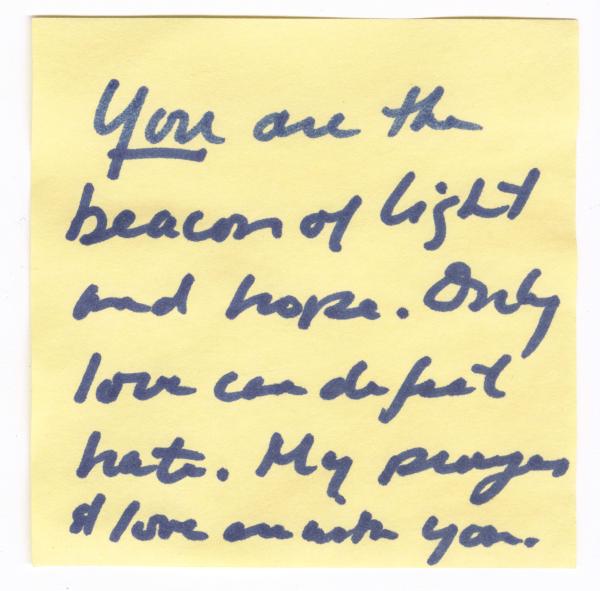 You are the
beacon of light
and hope. Only
love can defeat
hate. My prayers
& love are with you.